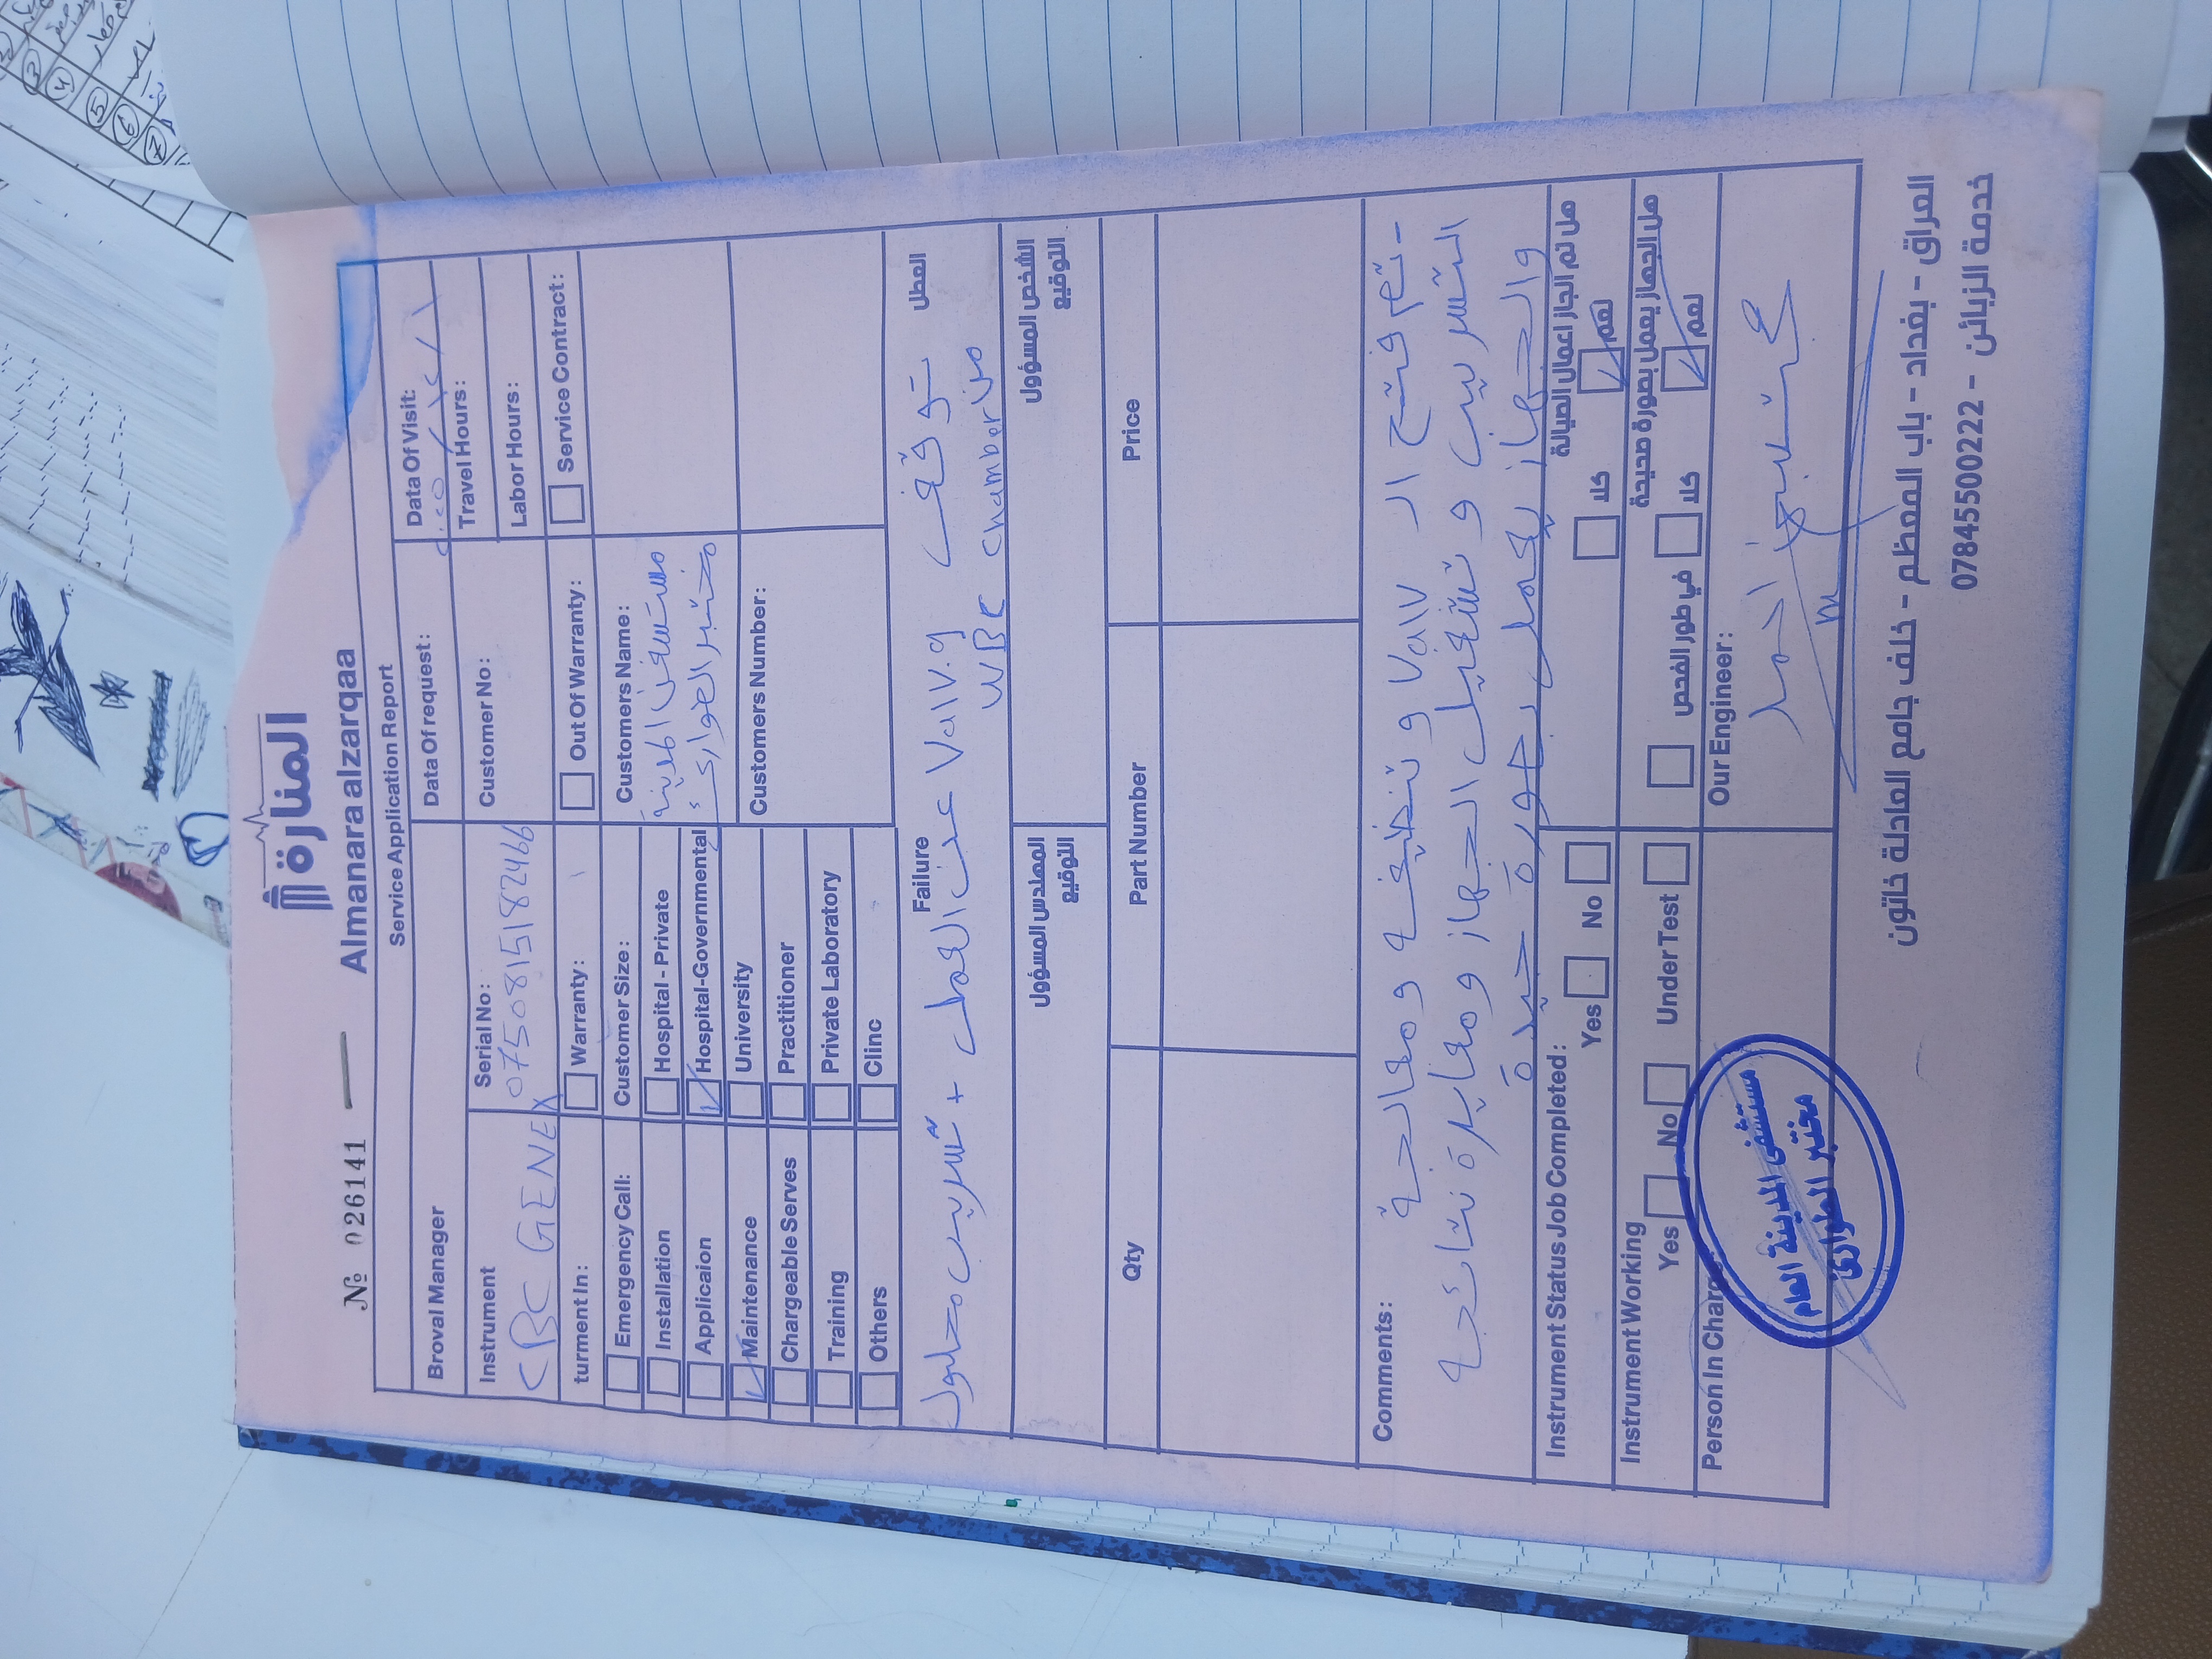 المنارة
№ 026141
Almanara alzarqaa
Service Application Report
Broval Manager
Data Of request:
Data Of Visit:
Travel Hours:
Instrument
CBC GENEX
Serial No:
0750815182466
Customer No:
Labor Hours:
turment In:
Warranty:
Out Of Warranty:
Service Contract:
Emergency Call:
Customer Size:
Customers Name:
مستشفى المدينة
مختبر الطوارئ
Installation
Hospital - Private
Applicaion
Hospital-Governmental
Maintenance
University
Customers Number:
Chargeable Serves
Practitioner
Training
Private Laboratory
Others
Clinc
Failure
العطل
توقف Vallv.9 عن العمل + تسريب محلول
من WBC Chamber
المهندس المسؤول
التوقيع
الشخص المسؤول
التوقيع
Qty
Part Number
Price
Comments:
- تم فتح الـ Vallv و تنظيف و معالجة
التسريب و تشغيل الجهاز ومعايرة نتائجه
والجهاز يعمل بصورة جيدة
Instrument Status Job Completed:
Yes
No
هل تم انجاز اعمال الصيانة
كلا
نعم
Instrument Working
Yes
No
Under Test
هل الجهاز يعمل بصورة صحيحة
في طور الفحص
كلا
نعم
Person In Charge
Our Engineer:
احمد
مستشفى المدينة العام
مختبر الطوارئ
العراق - بغداد - باب المعظم - خلف جامع العادلة خاتون
خدمة الزبائن - 07845500222